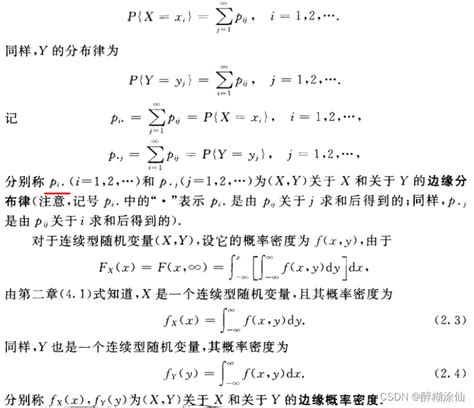 P{X = x_i} = \sum_{j=1}^{\infty} p_{ij}, i = 1,2,….
同样,Y 的分布律为
P{Y = y_j} = \sum_{i=1}^{\infty} p_{ij}, j = 1,2,….
记 p_{i·} = \sum_{j=1}^{\infty} p_{ij} = P{X = x_i}, i = 1,2,…,
p_{·j} = \sum_{i=1}^{\infty} p_{ij} = P{Y = y_j}, j = 1,2,…,
分别称 p_{i·}(i=1,2,…)和 p_{·j}(j=1,2,…)为(X,Y)关于 X 和关于 Y 的边缘分
布律(注意,记号 p_{i·} 中的“·”表示 p_{i·} 是由 p_{ij} 关于 j 求和后得到的;同样,p_{·j}
是由 p_{ij} 关于 i 求和后得到的).
对于连续型随机变量(X,Y),设它的概率密度为 f(x,y),由于
F_X(x) = F(x,∞) = \int_{-∞}^{x} [\int_{-∞}^{∞} f(x,y)dy]dx,
由第二章(4.1)式知道,X 是一个连续型随机变量,且其概率密度为
f_X(x) = \int_{-∞}^{∞} f(x,y)dy. (2.3)
同样,Y 也是一个连续型随机变量,其概率密度为
f_Y(y) = \int_{-∞}^{∞} f(x,y)dx. (2.4)
分别称 f_X(x),f_Y(y)为(X,Y)关于 X 和关于 Y 的边缘概率密度.
CSDN @醉糊涂仙